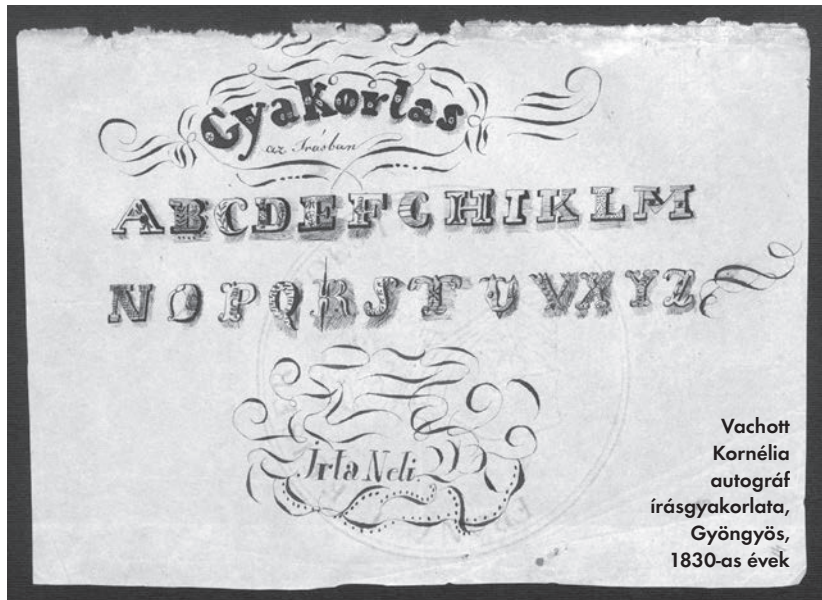 GyaKorlas
az Irásban
A B C D E F G H I K L M
N O P Q R S T U V X Y Z
Irta Neli.
Vachott
Kornélia
autográf
írásgyakorlata,
Gyöngyös,
1830-as évek